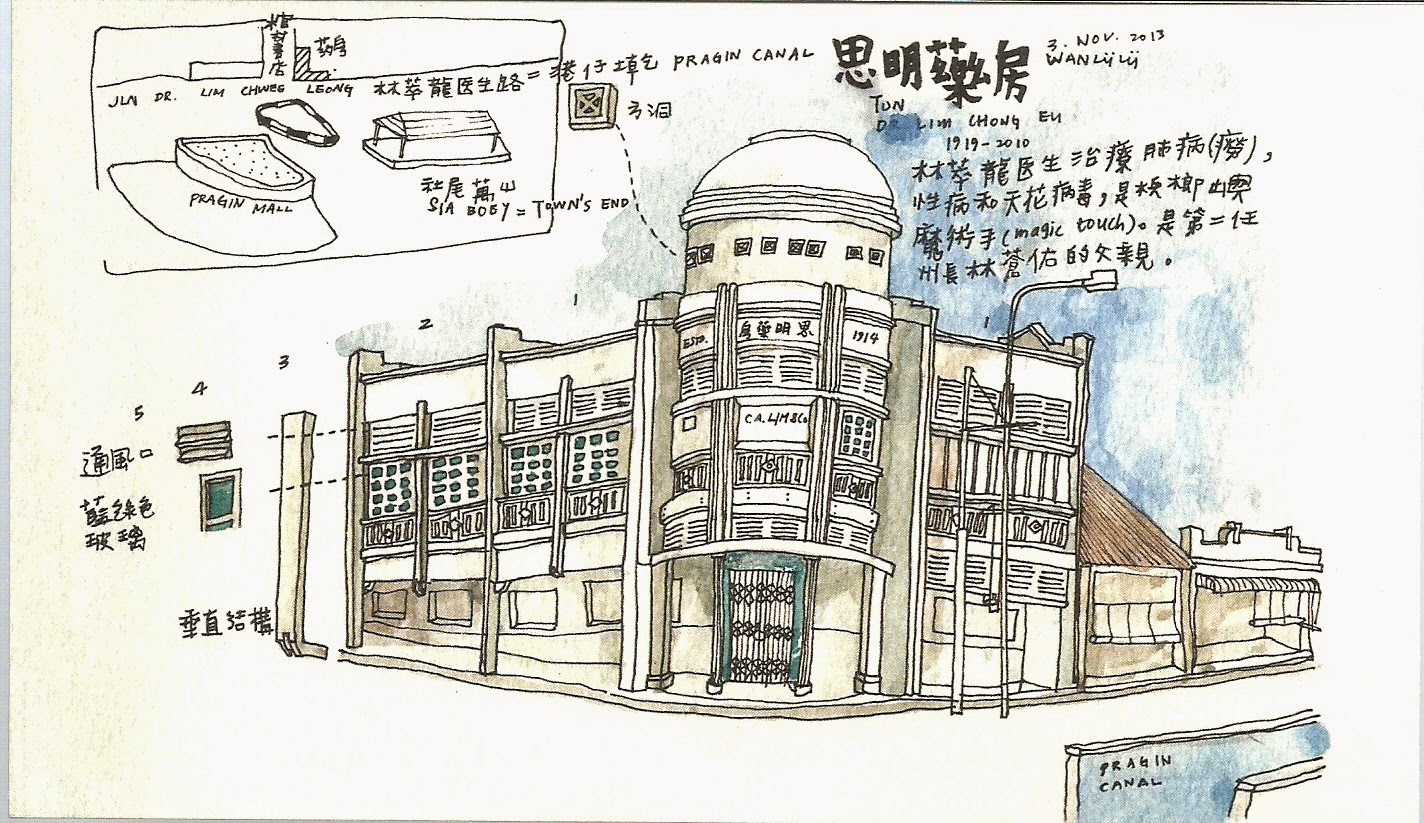 棺材店
药房
JLN DR. LIM CHWEE LEONG 林萃龍医生路 = 港仔墘 PRAGIN CANAL
PRAGIN MALL
社尾萬山
SIA BOEY = TOWN'S END
方洞
思明藥房
3. NOV. 2013
WANLIJLIJ
TUN
DR LIM CHONG EU
1919-2010
林萃龍医生治療肺病(癆),
性病和天花病毒,是檳榔嶼
魔術手(magic touch)。是第二任
州長林蒼佑的父親。
5 4 3 2 1 1
ESTD. 房藥明思 1914
C.A. LIM & Co
通風口
藍綠色
玻璃
垂直結構
PRAGIN
CANAL